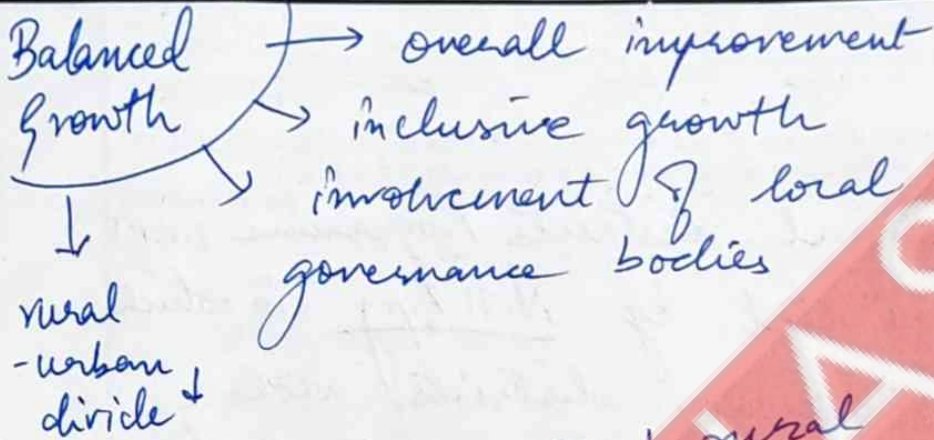 Balanced Growth
→ overall improvement
→ inclusive growth
→ involvement of local
governance bodies
↓
rural
-urban
divide ↓
rural
IAS